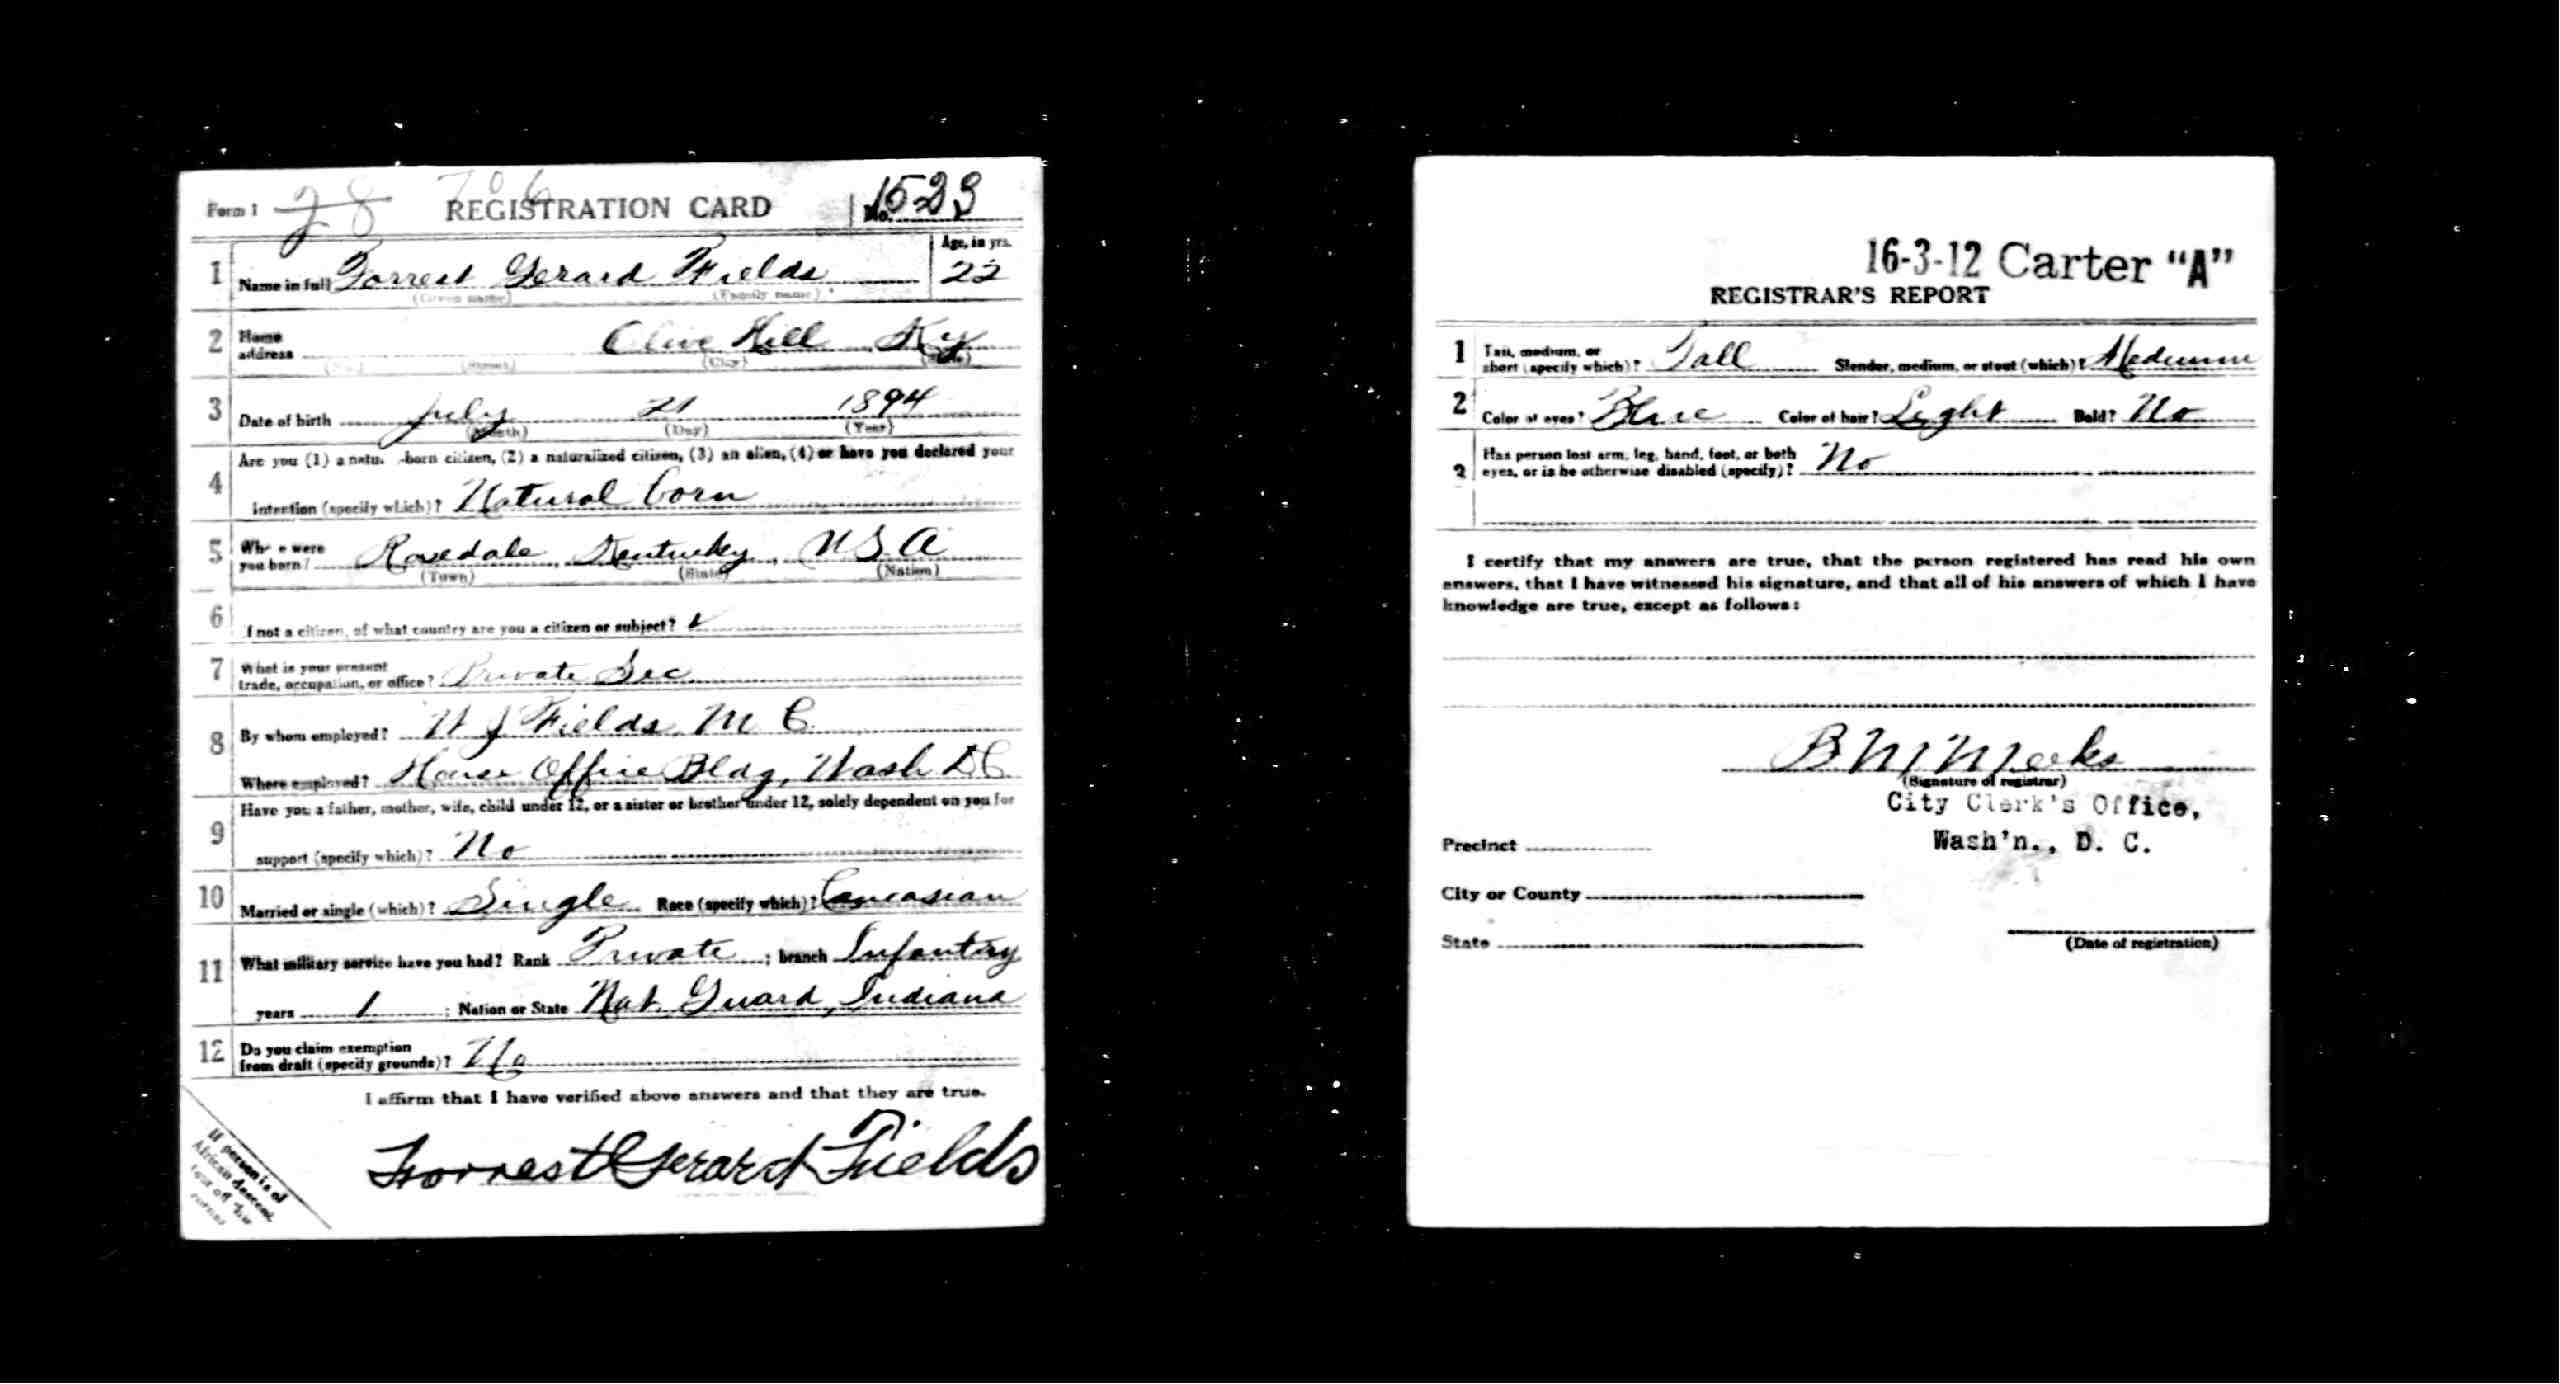 Form 1 28 706 REGISTRATION CARD No. 1523
1 Name in full Forrest Gerard Fields Age, in yrs. 22
(Given name) (Family name)
2 Home address Olive Hill Ky
(No.) (Street) (City) (State)
3 Date of birth July 21 1894
(Month) (Day) (Year)
4 Are you (1) a natu -born citizen, (2) a naturalized citizen, (3) an alien, (4) or have you declared your
intention (specify which)? Natural born
5 Whe e were you born? Rosedale, Kentucky, U S A
(Town) (State) (Nation)
6 If not a citizen, of what country are you a citizen or subject?
7 What is your present
trade, occupation, or office? Private Sec
8 By whom employed? W J Fields, M C
Where employed? House Office Bldg, Wash D C
9 Have you a father, mother, wife, child under 12, or a sister or brother under 12, solely dependent on you for
support (specify which)? No
10 Married or single (which)? Single Race (specify which)? Caucasian
11 What military service have you had? Rank Private ; branch Infantry
years 1 ; Nation or State Nat. Guard, Indiana
12 Do you claim exemption
from draft (specify grounds)? No
I affirm that I have verified above answers and that they are true.
Forrest Gerard Fields
If person is of
African descent,
tear off this
corner
16-3-12 Carter "A"
REGISTRAR'S REPORT
1 Tall, medium, or
short (specify which)? Tall Slender, medium, or stout (which)? Medium
2 Color of eyes? Blue Color of hair? Light Bald? No
3 Has person lost arm, leg, hand, foot, or both
eyes, or is he otherwise disabled (specify)? No
I certify that my answers are true, that the person registered has read his own
answers, that I have witnessed his signature, and that all of his answers of which I have
knowledge are true, except as follows:
B M Meeks
(Signature of registrar)
City Clerk's Office,
Precinct Wash'n., D. C.
City or County
State (Date of registration)